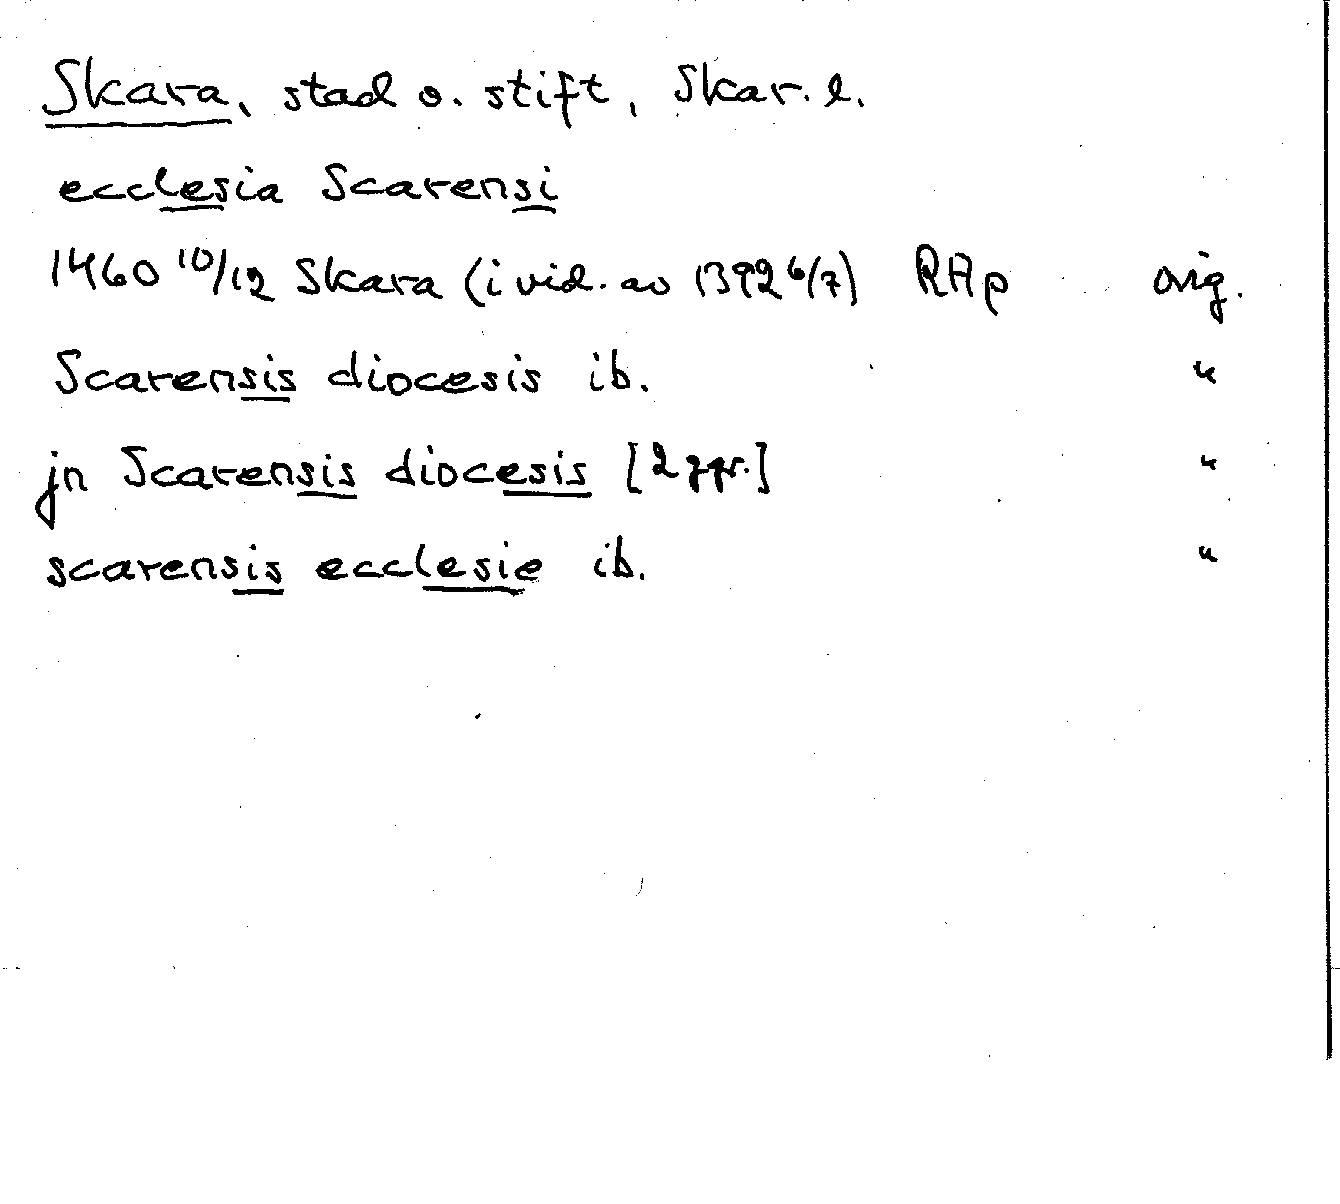 Skara, stad o. stift, Skar. l.
ecclesia Scarensi
1460 10/12 Skara (i vid. av 1392 6/7) RAp orig.
Scarensis diocesis ib. "
jn Scarensis diocesis [2 ggr.] "
scarensis ecclesie ib. "